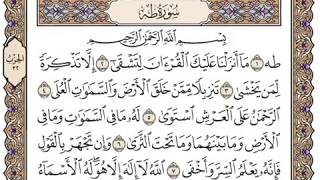 سُورَةُ طه
بِسْمِ ٱللَّهِ ٱلرَّحْمَٰنِ ٱلرَّحِيمِ
طه ١ مَآ أَنزَلْنَا عَلَيْكَ ٱلْقُرْءَانَ لِتَشْقَىٰٓ ٢ إِلَّا تَذْكِرَةً
لِّمَن يَخْشَىٰ ٣ تَنزِيلًا مِّمَّنْ خَلَقَ ٱلْأَرْضَ وَٱلسَّمَٰوَٰتِ ٱلْعُلَى ٤
ٱلرَّحْمَٰنُ عَلَى ٱلْعَرْشِ ٱسْتَوَىٰ ٥ لَهُۥ مَا فِي ٱلسَّمَٰوَٰتِ وَمَا فِي
ٱلْأَرْضِ وَمَا بَيْنَهُمَا وَمَا تَحْتَ ٱلثَّرَىٰ ٦ وَإِن تَجْهَرْ بِٱلْقَوْلِ
فَإِنَّهُۥ يَعْلَمُ ٱلسِّرَّ وَأَخْفَى ٧ ٱللَّهُ لَآ إِلَٰهَ إِلَّا هُوَ لَهُ ٱلْأَسْمَآءُ
الحزب
٣٢